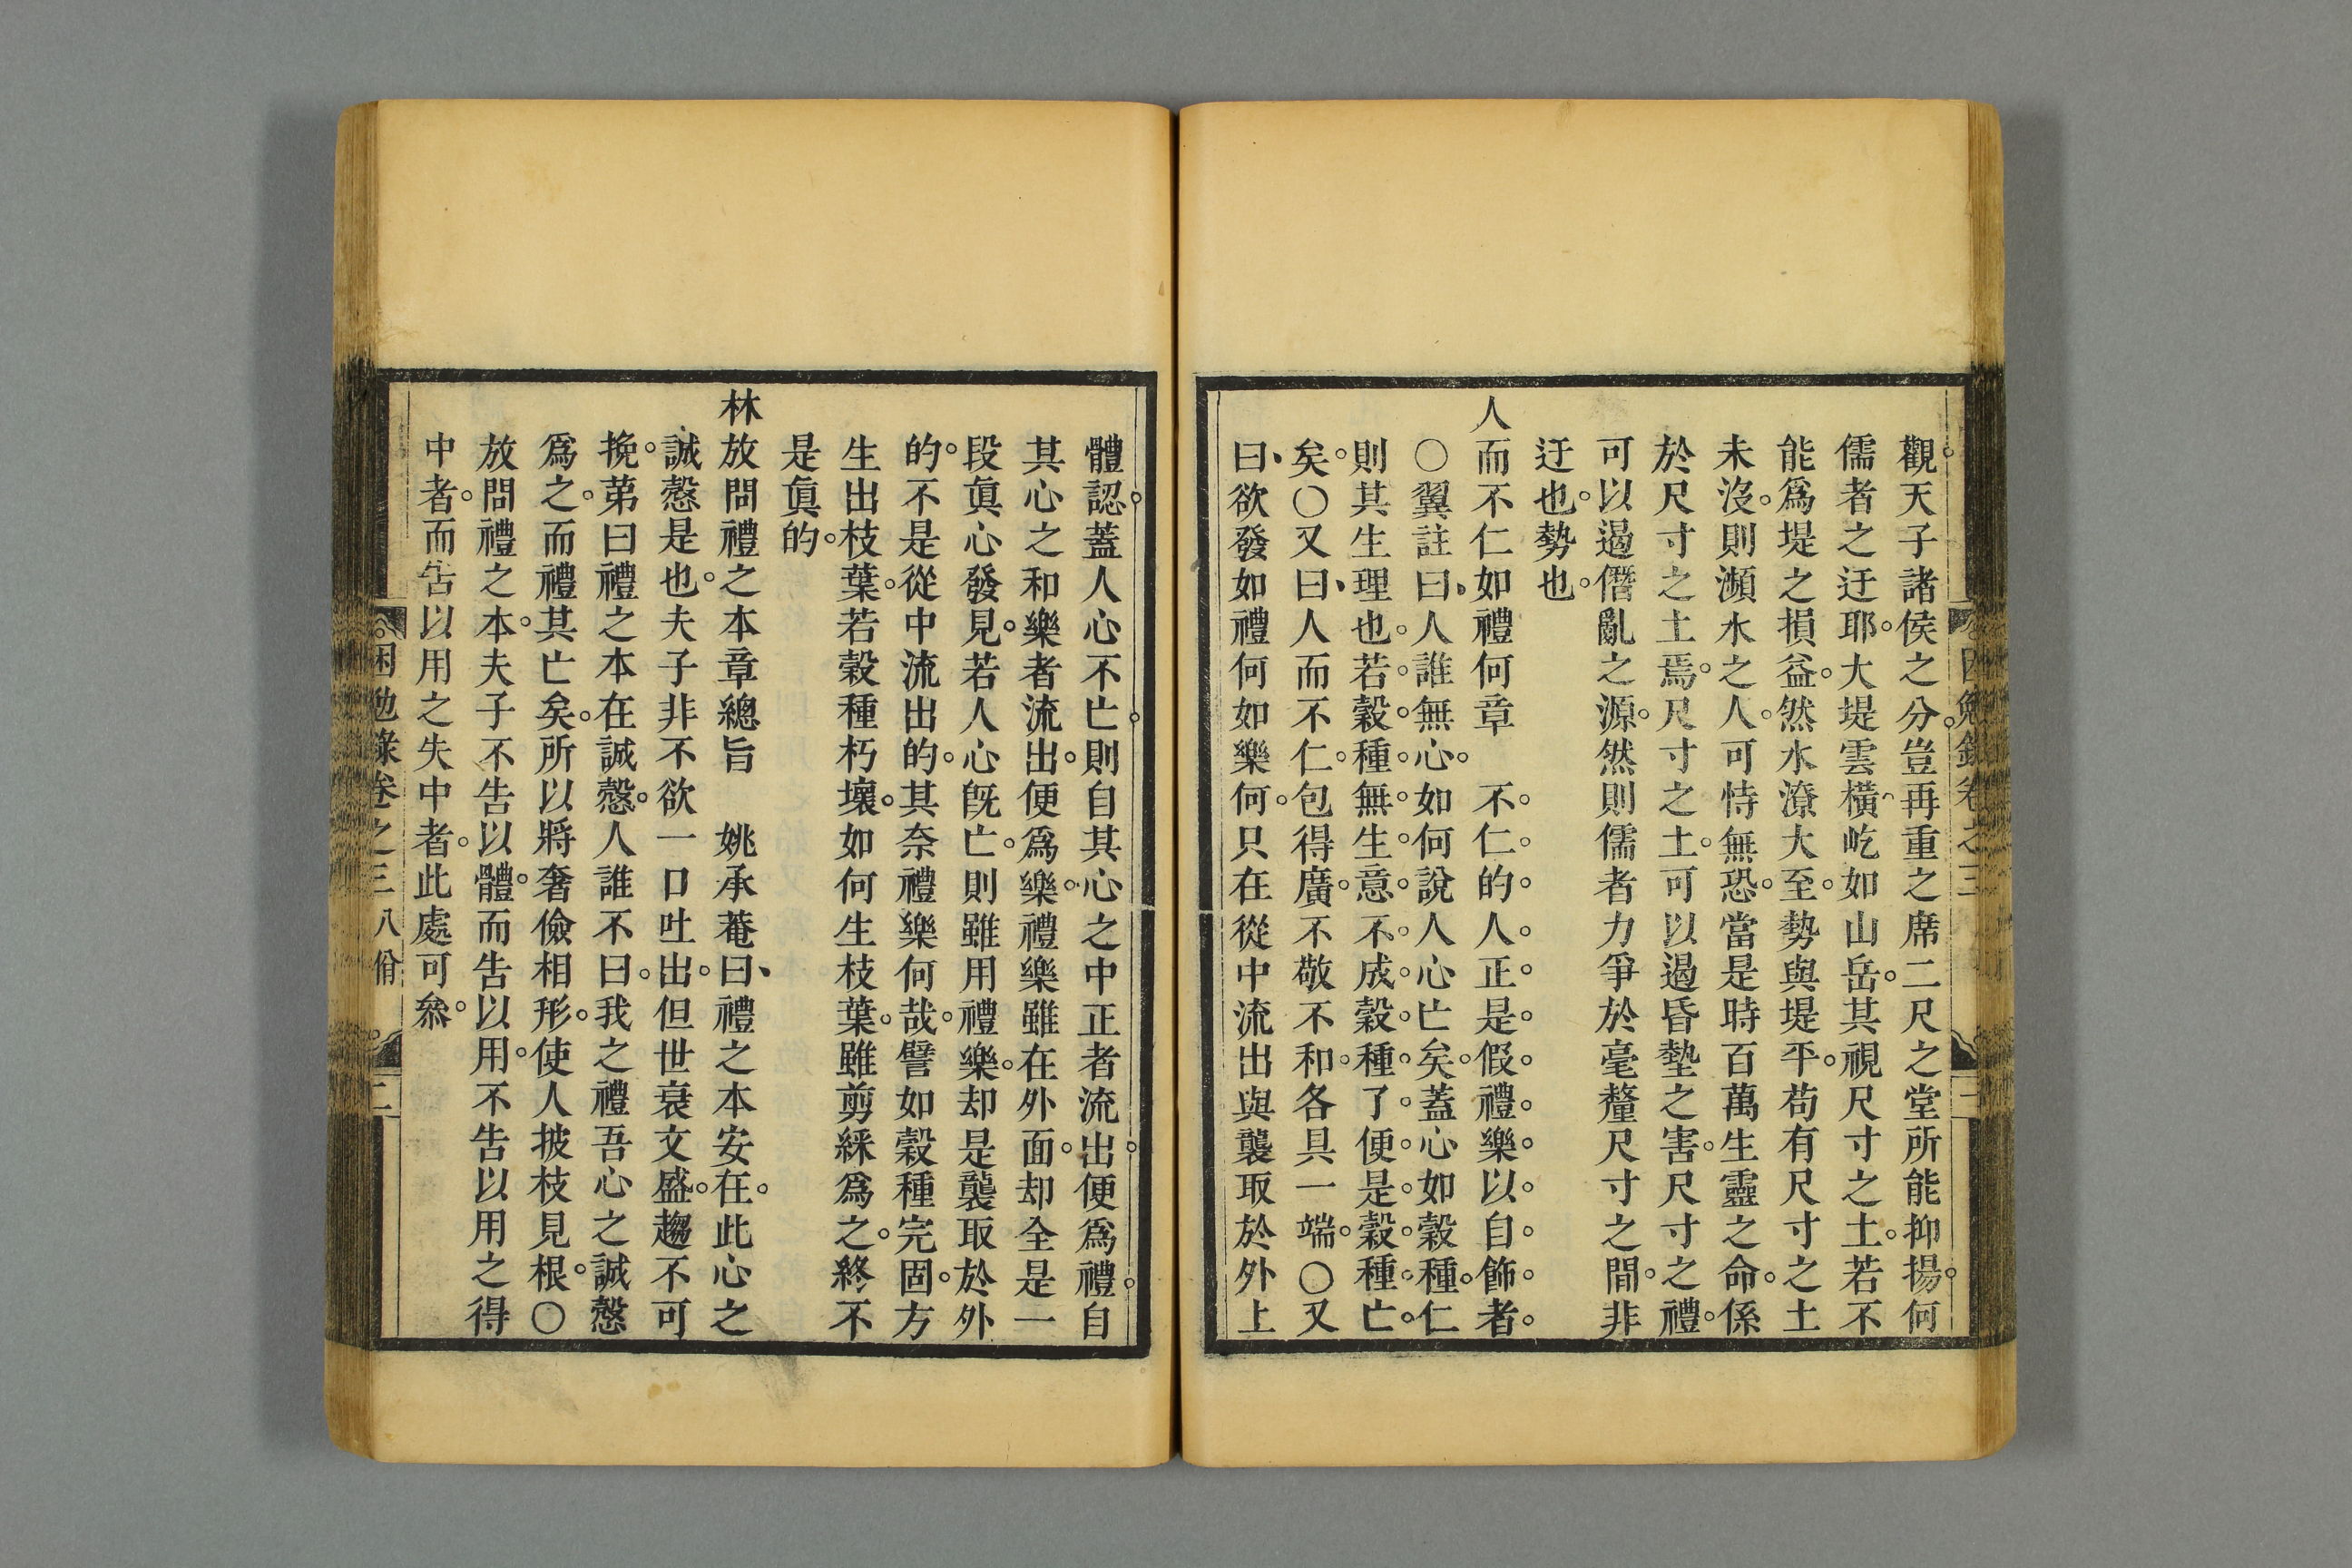 觀天子諸侯之分。豈再重之席二尺之堂所能抑揚。何
儒者之迂耶。大堤雲橫屹如山岳。其視尺寸之土。若不
能爲堤之損益。然水潦大至。勢與堤平。苟有尺寸之土
未沒。則瀕水之人。可恃無恐。當是時百萬生靈之命。係
於尺寸之土焉。尺寸之土。可以遏昏墊之害。尺寸之禮。
可以遏僭亂之源。然則儒者力爭於毫釐尺寸之間。非
迂也。勢也。
人而不仁如禮何章　不。仁。的。人。正。是。假。禮。樂。以。自。飾。者。
○翼註曰、人誰無心。如何說人心亡矣。蓋心如穀種。仁
則其生理也。若。穀。種。無。生。意。不。成。穀。種。了。便。是。穀。種。亡。
矣。○又曰、人而不仁。包得廣。不敬不和。各具一端。○又
曰、欲發如禮何如樂何。只在從中流出與襲取於外上
體認。蓋人心不亡。則自其心之中正者流出。便爲禮。自
其心之和樂者流出。便爲樂。禮樂雖在外面。却全是一
段眞心發見。若人心旣亡。則雖用禮樂。却是襲取於外
的。不是從中流出的。其奈禮樂何哉。譬如穀種完固。方
生出枝葉。若穀種朽壞。如何生枝葉。雖剪綵爲之。終不
是眞的。
林放問禮之本章總旨　姚承菴曰、禮之本安在。此心之
誠慤是也。夫子非不欲一口吐出。但世衰文盛。趨不可
挽。苐曰禮之本在誠慤。人誰不曰。我之禮吾心之誠慤
爲之。而禮其亡矣。所以將奢儉相形。使人披枝見根。○
放問禮之本。夫子不告以體。而告以用。不告以用之得
中者。而告以用之失中者。此處可叅。
困勉錄卷之三 八佾 二